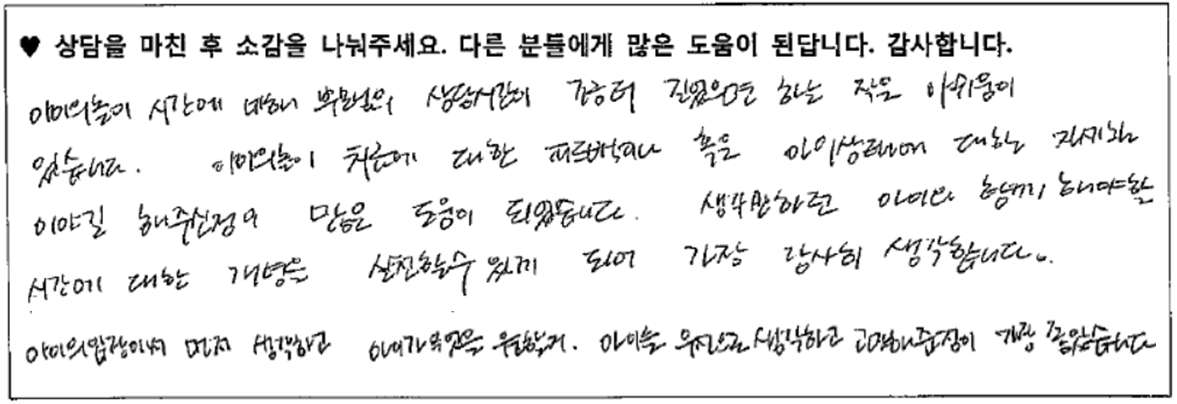 ♥ 상담을 마친 후 소감을 나눠주세요. 다른 분들에게 많은 도움이 된답니다. 감사합니다.
아이의놀이 시간에 대해 부모님의 상담시간이 조금더 길었으면 하는 작은 아쉬움이
있습니다. 아이의놀이 치료에 대한 피드백이나 혹은 아이상태에 대한 자세한
이야길 해주신점이 많은 도움이 되었습니다. 생각만하던 아이와 함께 해야할
시간에 대한 개념을 실천할수 있게 되어 가장 감사히 생각합니다.
아이의입장에서 먼저 생각하고 아이가 무엇을 원할지. 아이를 우선으로 생각하고 고려해준점이 가장 좋았습니다